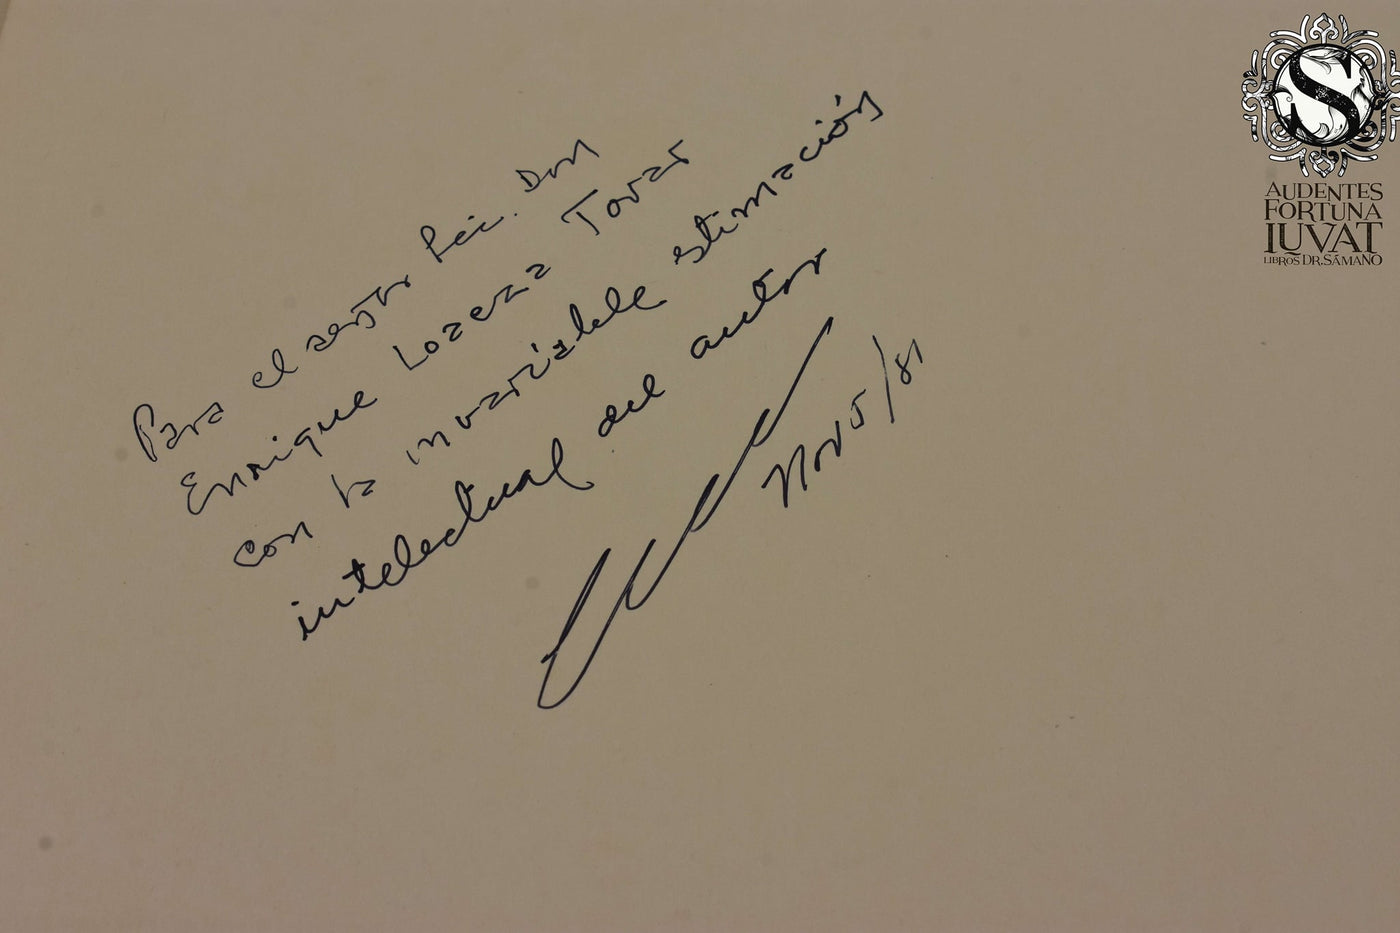 Para el señor Lic. Don
Enrique Loaeza Tovar
con la invariable estimación
intelectual del autor
Nov 5/81
S
AUDENTES
FORTUNA
IUVAT
LIBROS DR. SÁMANO